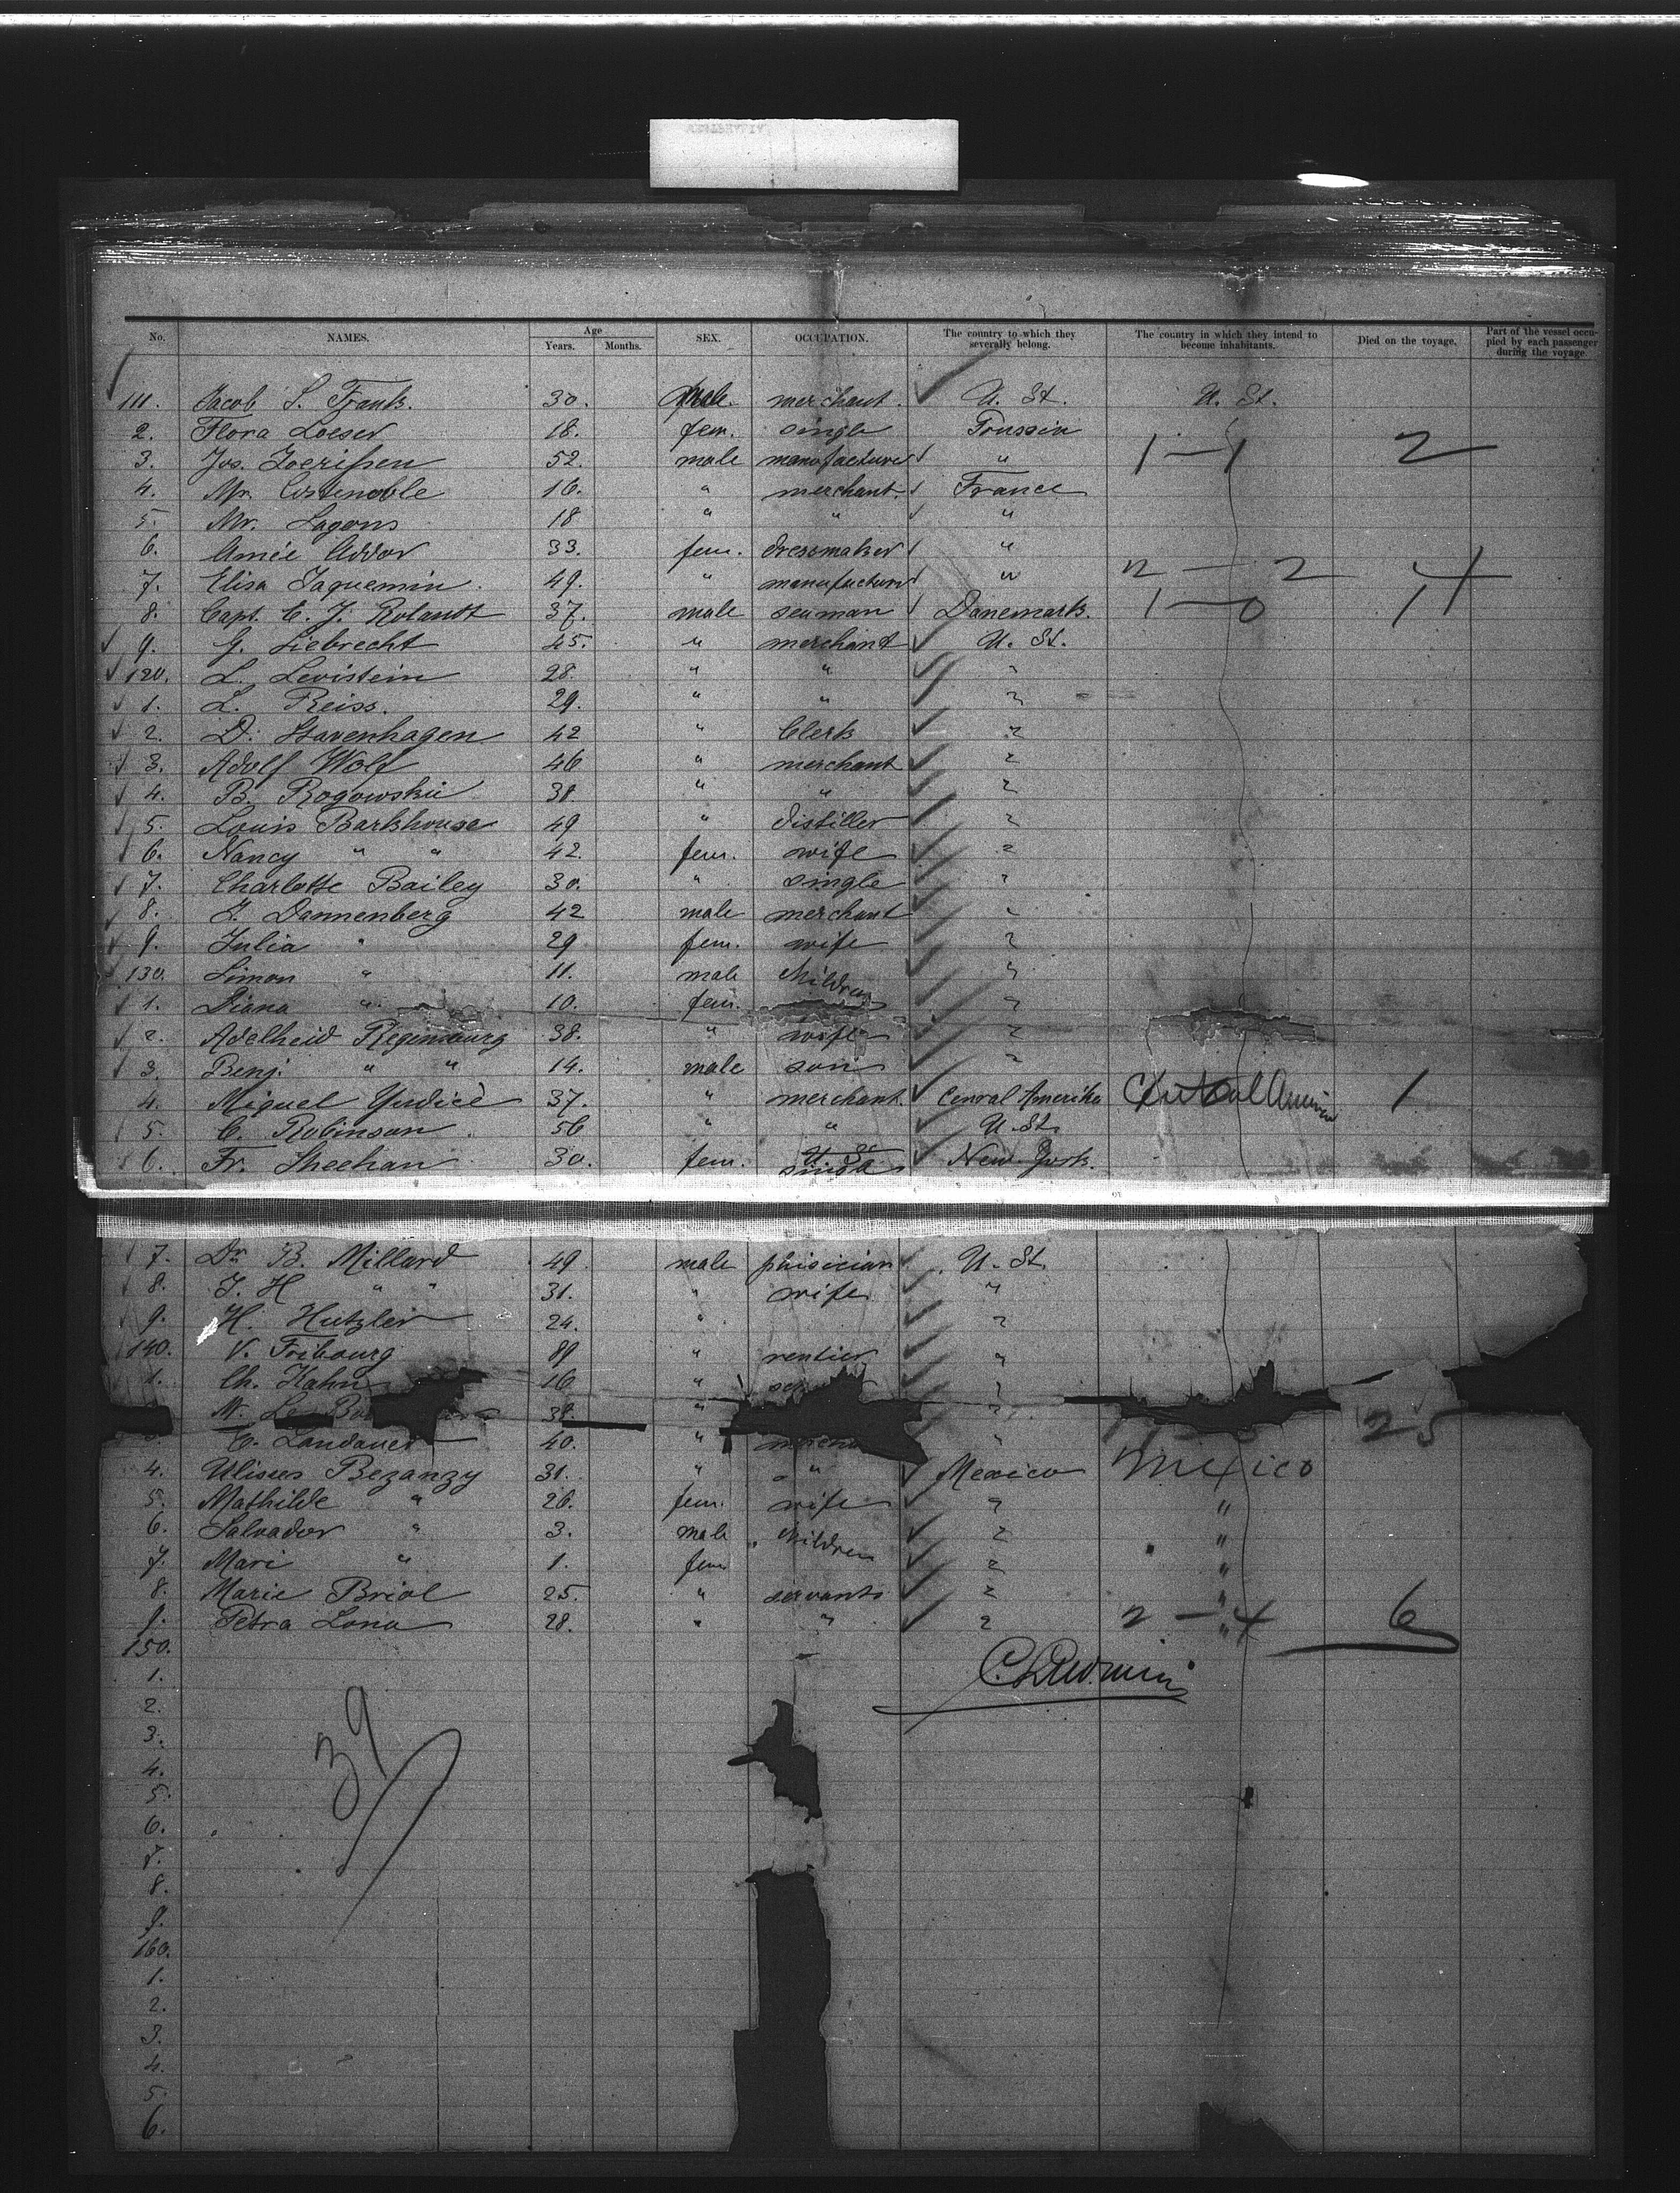 No. NAMES. Age Years. Months. SEX. OCCUPATION. The country to which they severally belong. The country in which they intend to become inhabitants. Died on the voyage. Part of the vessel occupied by each passenger during the voyage.
111. Jacob S. Frank. 30. male. merchant. U. St. U. St.
2. Flora Loeser 18. fem. single Prussia
3. Jos. 52. male manufacturer " 1 — 1 2
4. Mr. Costenoble 16. " merchant. France
5. Mr. Lagons 18 " " "
6. Amée Addor 33. fem. dressmaker "
7. Elisa Jaquemin 49. " manufacturer " 2 — 2 4
8. Capt. C. J. Rolandt 37. male seaman Danemark. 1 — 0 1
9. J. Liebrecht 45. " merchant U. St.
120. L. Levistein 28. " " "
1. L. Reiss. 29. " " "
2. D. Stavenhagen 42 " Clerk "
3. Adolf Wolf 46 " merchant "
4. B. Rogowski 38. " " "
5. Louis Barkhouse 49 " distiller "
6. Nancy " " 42. fem. wife "
7. Charlotte Bailey 30. " single "
8. J. Dannenberg 42 male merchant "
9. Julia " 29 fem. wife "
130. Simon " 11. male children "
1. Diana " 10. fem. "
2. Adelheid Regensburg 38. " wife "
3. Benj. " " 14. male son "
4. Miguel Yudicé 37. " merchant. Cenral Amerika Central America 1
5. C. Robinson 56 " " U. St.
6. Fr. Sheehan 30. fem. U. St. single New York.
7. Dr. B. Millard 49. male phisician U. St.
8. J. H " " 31. " wife "
9. H. Hutzler 24. " "
140. V. Fribourg 89 " rentier "
1. Ch. Kahn 16 " "
N. Le 38. " "
C. Landauer 40. " " 25
4. Ulisus Bezanzy 31. " " Mexico Mexico
5. Mathilde " 26. fem. wife " "
6. Salvador " 3. male children " "
7. Mari " 1. fem " " "
8. Marie Briol 25. " servants " "
9. Petra Lona 28. " " " " 2 — 4 6
150.
1.
2.
3.
39
4.
5.
6.
7.
8.
9.
160.
1.
2.
3.
4.
5.
6.